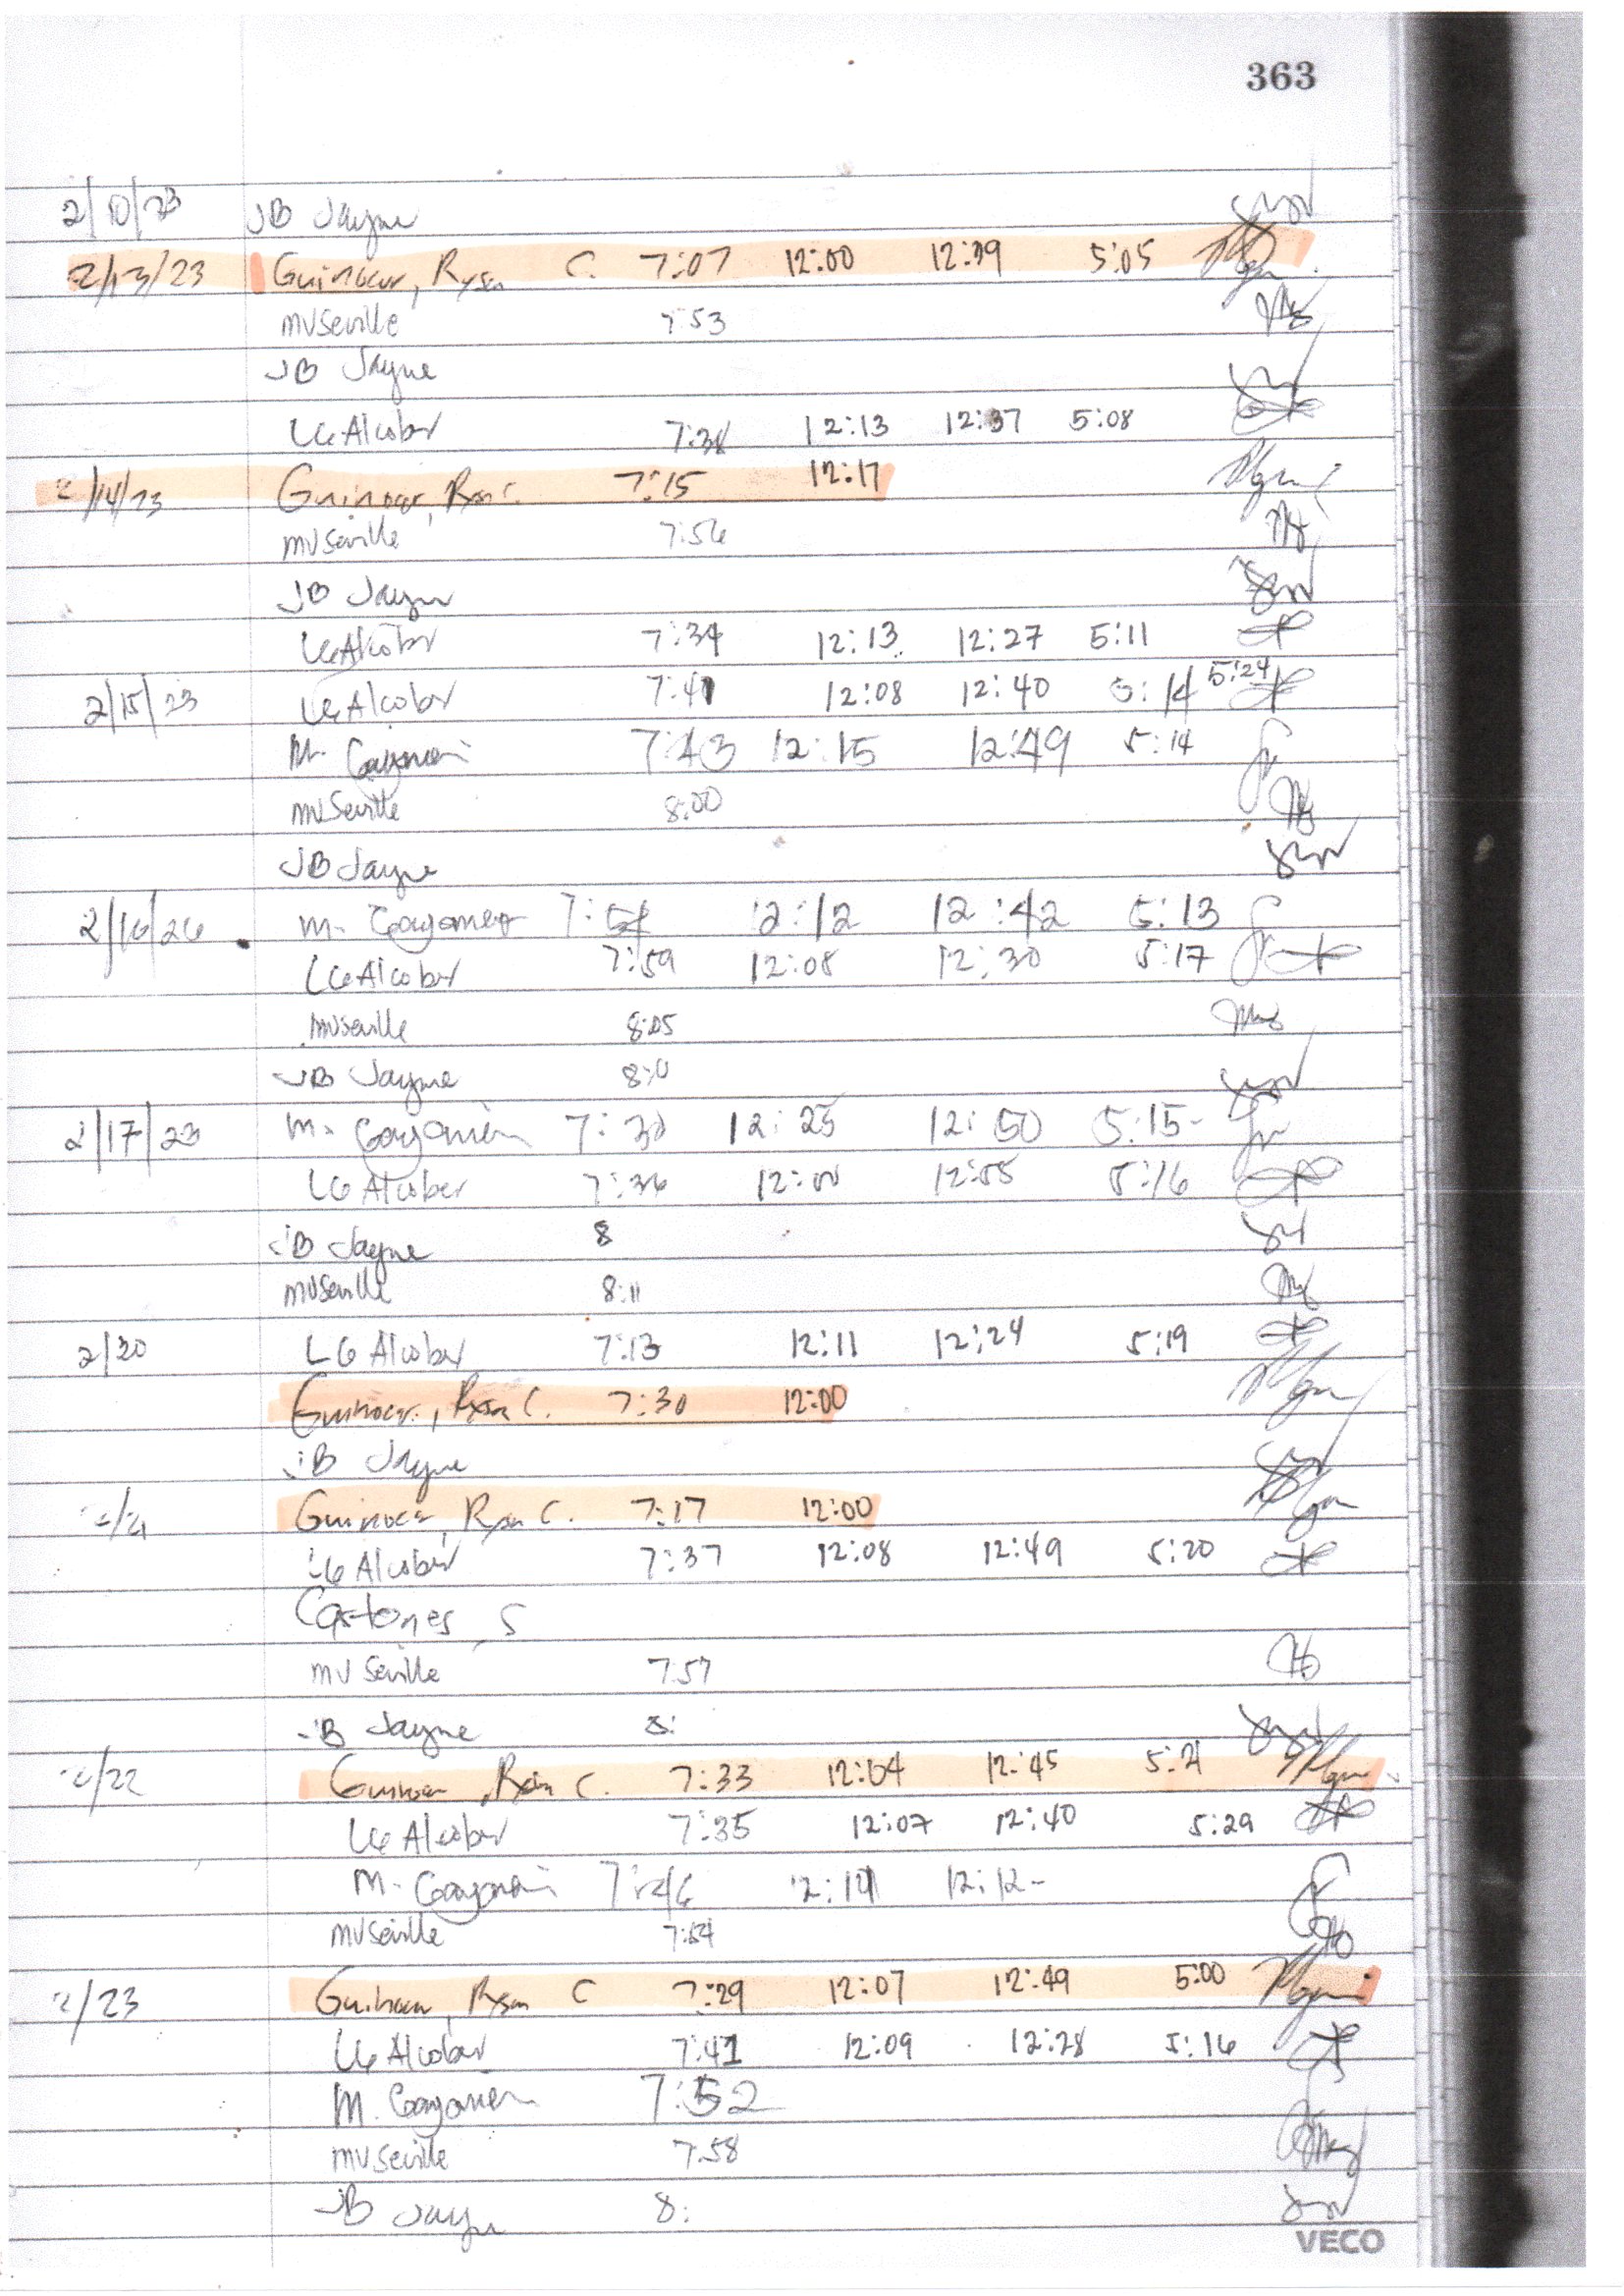 363
2/10/23 JB Jayme
2/13/23 Guinocor, Ryan C. 7:07 12:00 12:39 5:05
MVSeville 7:53
JB Jayme
LG Alcober 7:38 12:13 12:37 5:08
2/14/23 Guinocor, Ryan C. 7:15 12:17
MVSeville 7:56
JB Jayme
LG Alcober 7:34 12:13 12:27 5:11
2/15/23 LG Alcober 7:41 12:08 12:40 5:14 5:24
M. 7:43 12:15 12:49 5:14
MVSeville 8:00
JB Jayme
2/16/26 M. 12:12 12:42 5:13
LG Alcober 7:59 12:08 12:30 5:17
MVSeville 8:05
JB Jayme 8:0
2/17/23 M. 7:30 12:25 12:50 5:15-
LG Alcober 7:36 12:00 12:55 5:16
JB Jayme 8
MVSeville 8:11
2/20 LG Alcober 7:13 12:11 12:24 5:19
Guinocor, Ryan C. 7:30 12:00
JB Jayme
2/21 Guinocor, Ryan C. 7:17 12:00
LG Alcober 7:37 12:08 12:49 5:20
Castones, S
MV Seville 7:57
JB Jayme 8:
2/22 Guinocor, Ryan C. 7:33 12:04 12:45 5:21
LG Alcober 7:35 12:07 12:40 5:29
M. 7:46 12:12-
MVSeville 7:54
2/23 Guinocor, Ryan C 7:29 12:07 12:49 5:00
LG Alcober 7:41 12:09 12:28 5:16
M. 7:52
MVSeville 7:58
JB Jayme 8:
VECO